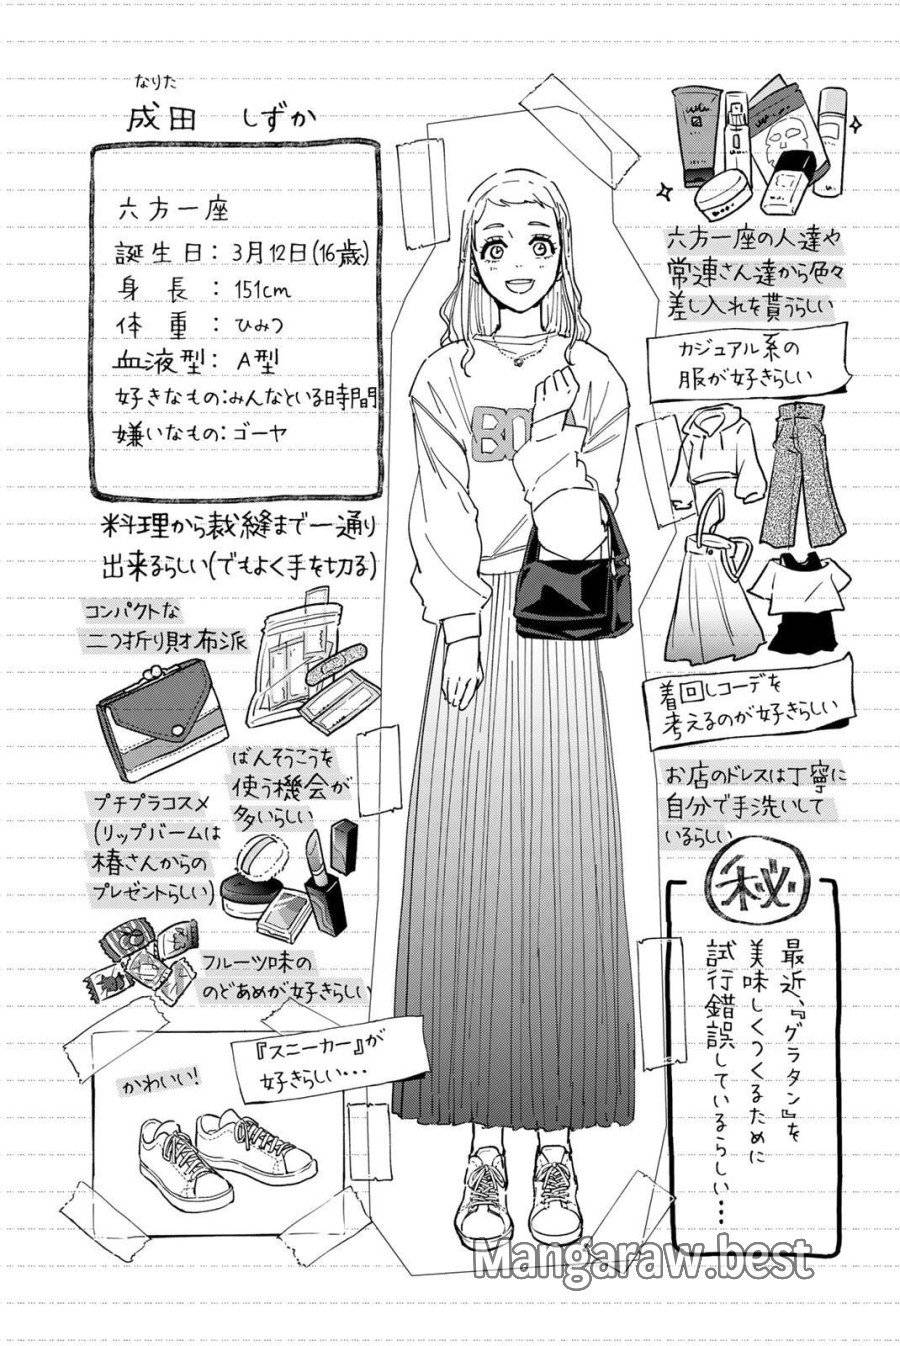 なりた
成田 しずか
六方一座
誕生日：3月12日(16歳)
身長：151cm
体重：ひみつ
血液型：A型
好きなもの：みんなといる時間
嫌いなもの：ゴーヤ
料理から裁縫まで一通り
出来るらしい(でもよく手を切る)
コンパクトな
二つ折り財布派
ばんそうこうを
使う機会が
多いらしい
プチプラコスメ
(リップバームは
椿さんからの
プレゼントらしい)
フルーツ味の
のどあめが好きらしい
『スニーカー』が
好きらしい…
かわいい！
六方一座の人達や
常連さん達から色々
差し入れを貰うらしい
カジュアル系の
服が好きらしい
着回しコーデを
考えるのが好きらしい
お店のドレスは丁寧に
自分で手洗いして
いるらしい
秘
最近、『グラタン』を
美味しくつくるために
試行錯誤しているらしい…
Mangaraw.best